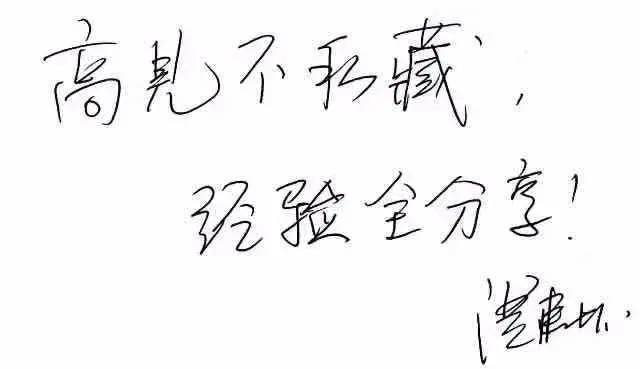 高见不私藏，
经验全分享！